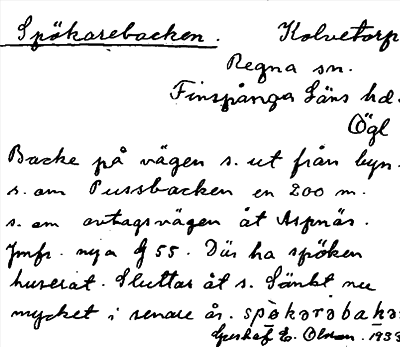 Spökarebacken. Kolvetorp
Regna sn.
Finspånga Läns hd.
Ögl
Backe på vägen s. ut från byn.
s. om Pussbacken en 200 m.
s. om avtagsvägen åt Aspnäs.
Jmfr. nya G 55. Där ha spöken
huserat. Sluttar åt s. Sänkt nu
mycket i senare år. spökarabaka
Gustaf E. Olsson. 1933